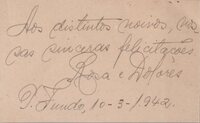 Aos distintos noivos, nos
sas sinceras felicitações
Rosa e Dolores
P. Fundo, 10-3-1942.